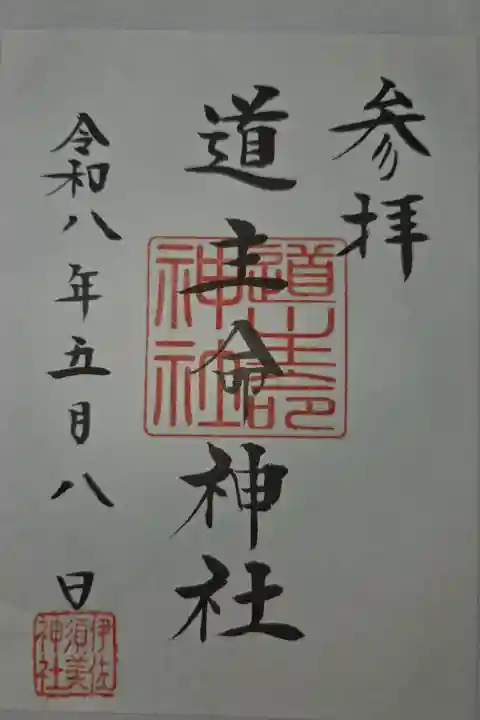 参拝
道主命神社
道主命
神社
令和八年五月八日
伊佐
須美
神社